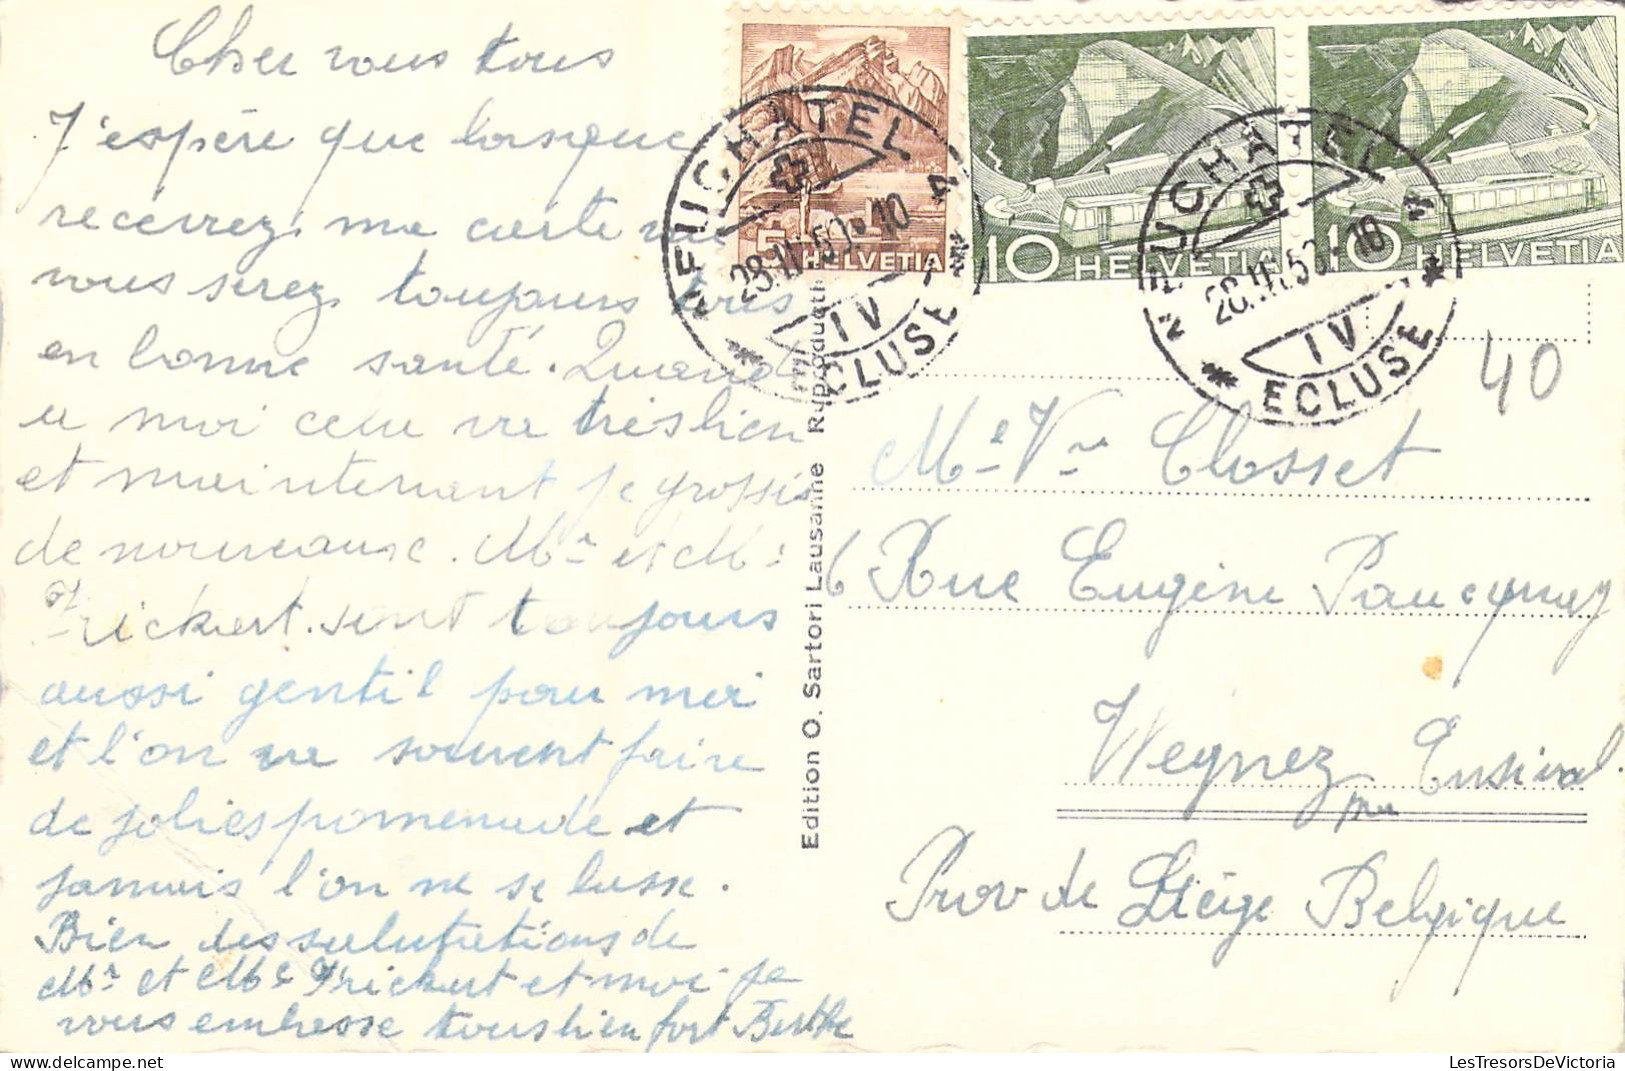 Cher vous tous
J'espère que lorsque
recevrez ma carte
vous serez toujours tous
en bonne santé. Quand
a moi cela va très bien
et maintenant je grossis
de nouveaux. Mr et Me
Frickert sont toujours
aussi gentil pour moi
et l'on va souvent faire
de jolies promenade et
jamais l'on ne se lasse.
Bien des salutations de
Mr et Me Frickert et moi je
vous embrasse tous bien fort Berthe
Edition O. Sartori Lausanne
NEUCHATEL 4
28.IV.50-10
IV
ECLUSE
5
HELVETIA
10 HELVETIA
10 HELVETIA
NEUCHATEL 4
28.IV.50-10
IV
ECLUSE
40
Me Vve Closset
6 Rue Eugène
Wegnez Ensival
par
Prov de Liège Belgique
LesTresorsDeVictoria